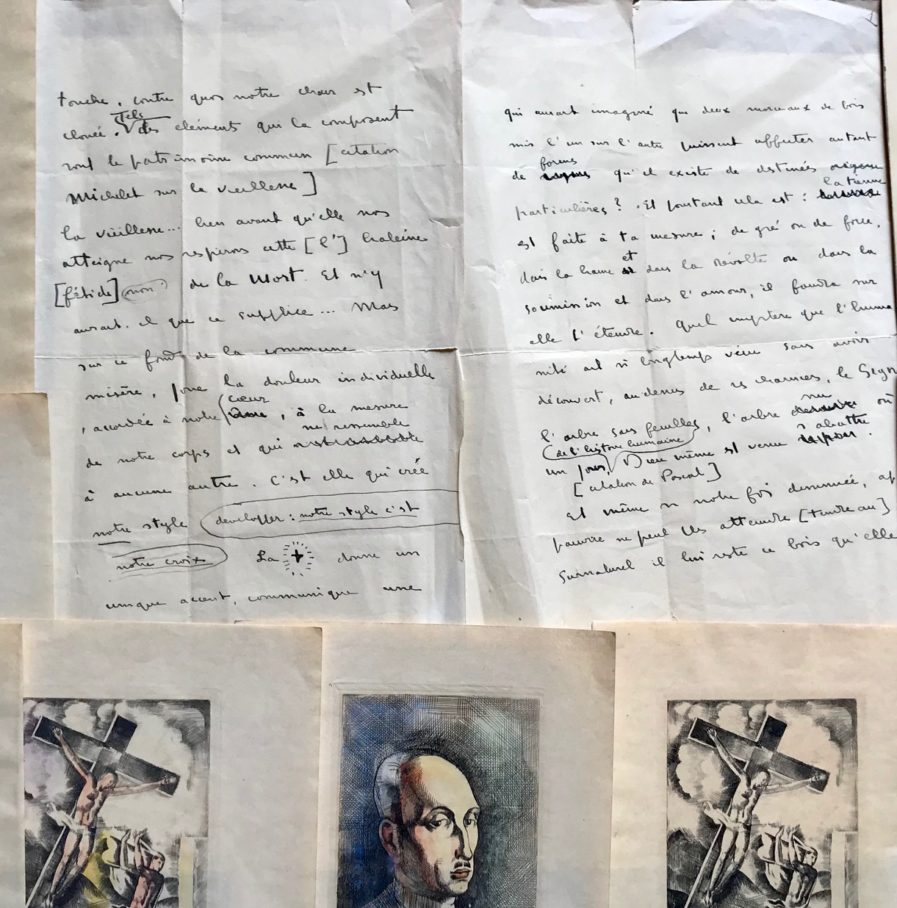 touche, contre quoi notre chair est
clouée. Tels des éléments qui la composent
sont le patrimoine commun [citation
Michelet sur la vieillesse]
La vieillesse... bien avant qu'elle nous
atteigne nous respirons cette [l'] haleine
[fétide] (non) de la Mort. Et n'y
aurait-il que ce supplice... Mais
sur ce fond de la commune
misère, joue la douleur individuelle
, accordée à notre cœur, à la mesure
de notre corps et qui ne ressemble
à aucune autre. C'est elle qui crée
notre style
développer : notre style c'est
notre croix
La + donne un
unique accent, communique une
qui aurait imaginé que deux morceaux de bois
mis l'un sur l'autre puissent affecter autant
de formes qu'il existe de destinées
particulières ? Et pourtant cela est : la tienne
est faite à ta mesure ; de gré ou de force,
dans la haine et dans la révolte ou dans la
soumission et dans l'amour, il faudra sur
elle t'étendre. Quel mystère que l'huma
nité ait si longtemps vécu sans avoir
découvert, au-dessus de ces charniers, le Signe
l'arbre sans feuilles, l'arbre nu où
un jour (de l'histoire humaine) un Dieu même est venu s'abattre.
[citation de Pascal]
Et même si notre foi diminuée, ap
pauvrie ne peut les atteindre [tendre au]
Surnaturel il lui reste ce bois qu'elle